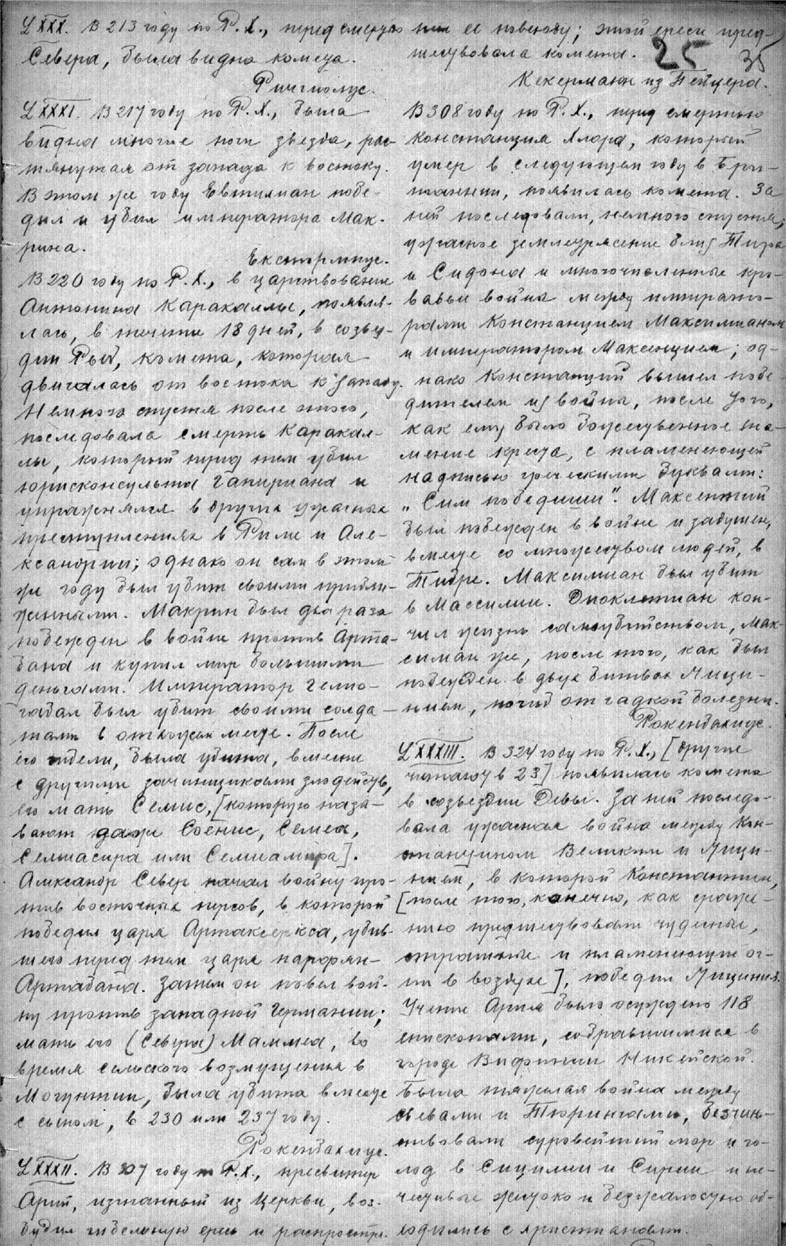 LXXX. В 213 году по Р. Х., перед смертью
Севера, была видна комета.
Риччиолус.
LXXXI. В 217 году по Р. Х., была
видна многие ночи звезда, рас-
тянутая от запада к востоку.
В этом же году Евтилиан побе-
дил и убил императора Мак-
рина.
Екстормиус.
В 220 году по Р. Х., в царствование
Антонина Каракаллы, появля-
лась, в течении 18 дней, в созвез-
дии Рыб, комета, которая
двигалась от востока к западу.
Немного спустя после этого,
последовала смерть Каракал-
лы, который перед тем убил
юрисконсульта Папириана и
упражнялся в других ужасных
преступлениях в Риме и Але-
ксандрии; однако он сам в этом
же году был убит своими прибли-
женными. Макрин был два раза
побежден в войне против Арта-
бана и купил мир большими
деньгами. Император Гелио-
габал был убит своими солда-
тами в отхожем месте. После
его гибели, была убита, вместе
с другими зачинщиками злодейств,
его мать Семис, [которую назы-
вают даже Соенис, Семеа,
Семиасира или Семиамира].
Александр Север начал войну про-
тив восточных персов, в которой
победил царя Артаксеркса, убив-
шего перед тем царя парфян-
Артабана. Затем он повел вой-
ну против западной Германии;
мать его (Севера) Маммеа, во
время сельского возмущения в
Могунтии, была убита вместе
с сыном, в 230 или 237 году.
Рокенбахиус.
LXXXII. В 307 году по Р. Х., пресвитер
Арий, изгнанный из Церкви, воз-
будил гибельную ересь и распростр.
ее повсюду; этой ереси пред-
шествовала комета.
25 35
Кекерманн из Пейцера.
В 308 году по Р. Х., перед смертью
Констанция Хлора, который
умер в следующем году в Бри-
таннии, появилась комета. За
ней последовали, немного спустя,
ужасное землетрясение близ Тира
и Сидона и многочисленные кро-
вавые войны между императо-
рами Констанцием Максимианом
и императором Максенцием; од-
нако Констанций вышел побе-
дителем из войны, после того,
как ему было божественное зна-
мение креста, с пламенеющей
надписью греческими буквами:
„Сим победиши". Максентий
был побежден в войне и задушен,
вместе со множеством людей, в
Тибре. Максимиан был убит
в Массилии. Диоклетиан кон-
чил жизнь самоубийством, Мак-
симан же, после того, как был
побежден в двух битвах Лици-
нием, погиб от гадкой болезни.
Рокенбахиус.
LXXXIII. В 324 году по Р. Х., [другие
читают в 23] появилась комета
в созвездии Девы. За ней последо-
вала ужасная война между Кон-
стантином Великим и Лици-
нием, в которой Константин,
[после того, конечно, как сраже-
нию предшествовали чудесные,
страшные и пламенеющие ог-
ни в воздухе], победил Лициния.
Учение Ария было осуждено 118
епископами, собравшимися в
городе Вифинии Никейской.
Была тяжелая война между
Свевами и Тюрингами,
суровейший мор и го-
лод в Сицилии и Сирии и не-
честивые жестоко и безжалостно об-
ходились с христианами.